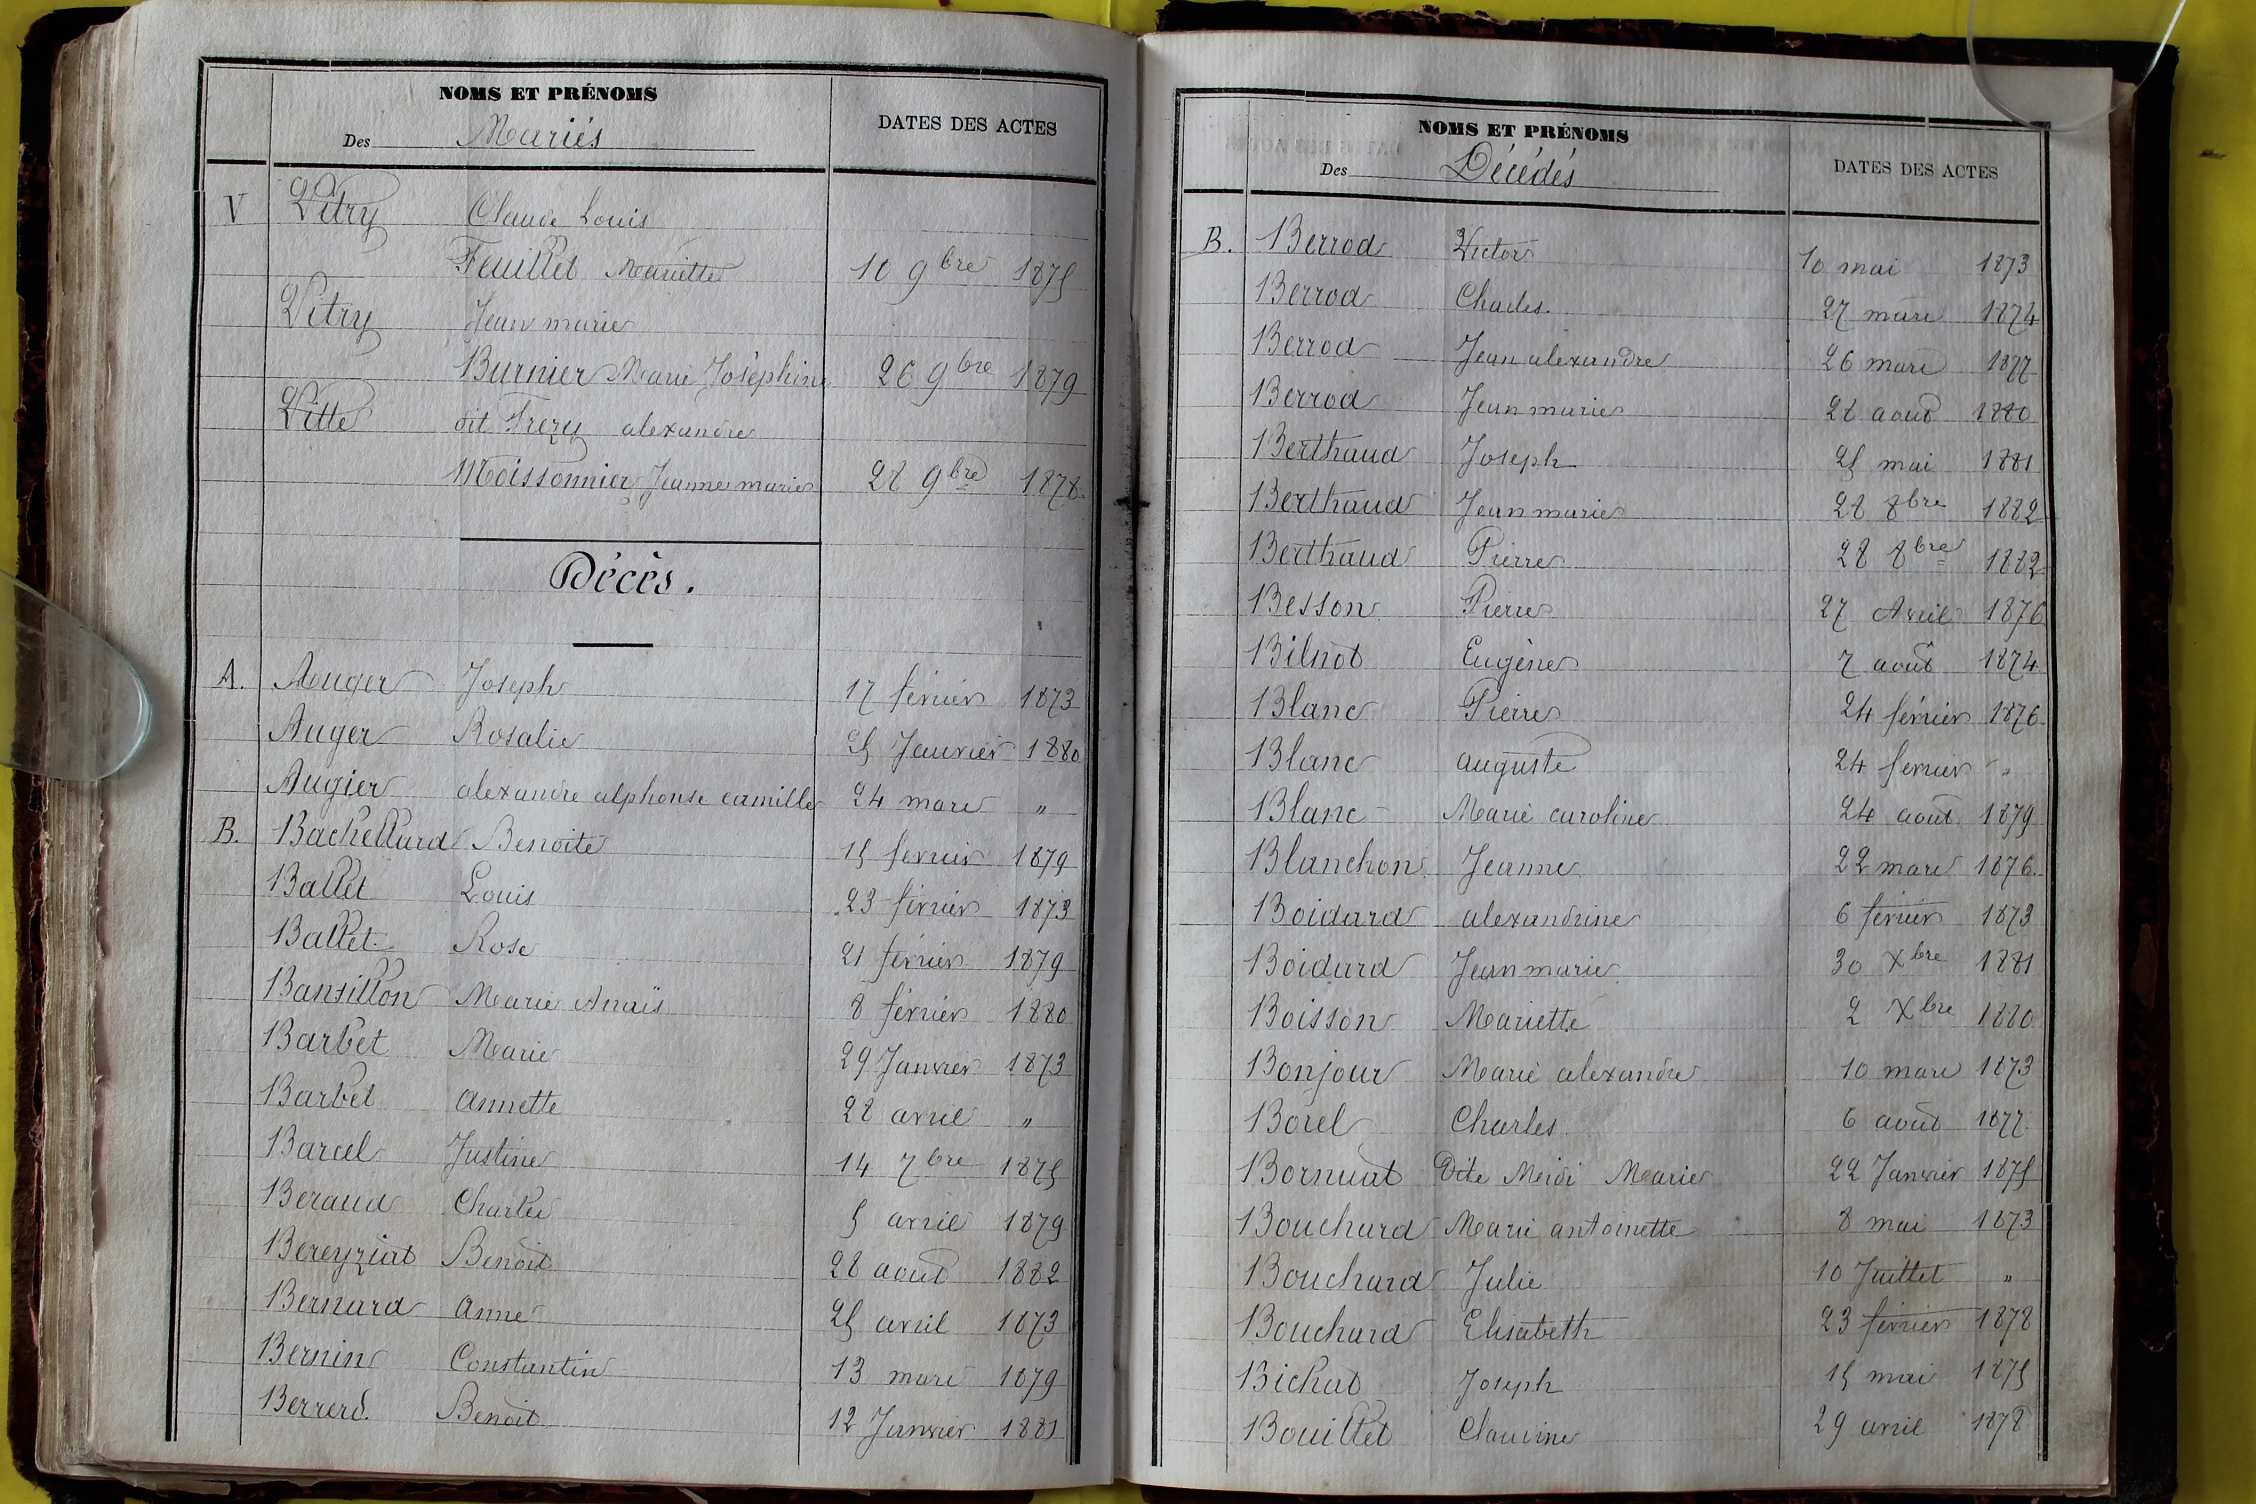 NOMS ET PRÉNOMS
Des Mariés
DATES DES ACTES
V Vitry Claude Louis
Feuillet Mariette 10 9bre 1875
Vitry Jean marie
Burnier Marie Joséphine 26 9bre 1879
Vitte dit Frezy alexandre
Moissonnier Jeanne marie 28 9bre 1878
Décès.
A. Auger Joseph 17 février 1873
Auger Rosalie 25 Janvier 1880
Augier alexandre alphonse camille 24 mars "
B. Bachellard Benoite 15 fevrier 1879
Ballet Louis 23 février 1873
Ballet Rose 21 février 1879
Bansillon Marie Anaïs 8 février 1880
Barbet Marie 29 Janvier 1873
Barbet annette 28 avril "
Barcel Justine 14 7bre 1875
Beraud Charles 5 avril 1879
Bereyziat Benoit 28 aout 1882
Bernard anne 25 avril 1873
Bernin Constantin 13 mars 1879
Berrerd. Benoit 12 Janvier 1881
NOMS ET PRÉNOMS
Des Décédés
DATES DES ACTES
B. Berrod Victor 10 mai 1873
Berrod Charles. 27 mars 1874
Berrod Jean alexandre 26 mars 1877
Berrod Jean marie 28 aout 1880
Berthaud Joseph 25 mai 1881
Berthaud Jean marie 28 8bre 1882
Berthaud Pierre 28 8bre 1882
Besson Pierre 27 Avril 1876
Bilnot Eugène 7 août 1874
Blanc Pierre 24 février 1876
Blanc auguste 24 fevrier "
Blanc Marie caroline 24 août 1879
Blanchon Jeanne 22 mars 1876.
Boidard alexandrine 6 février 1873
Boidard Jean marie 30 Xbre 1881
Boisson Mariette 2 Xbre 1880
Bonjour Marie alexandre 10 mars 1873
Borel Charles 6 août 1877
Bornuat Dite Meidi Marie 22 Janvier 1875
Bouchard Marie antoinette 8 mai 1873
Bouchard Julie 10 Juillet "
Bouchard Elisabeth 23 février 1878
Bichat Joseph 15 mai 1875
Bouillet Claudine 29 avril 1878